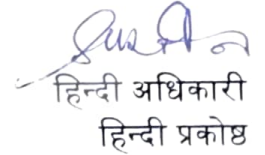 हिन्दी अधिकारी
हिन्दी प्रकोष्ठ